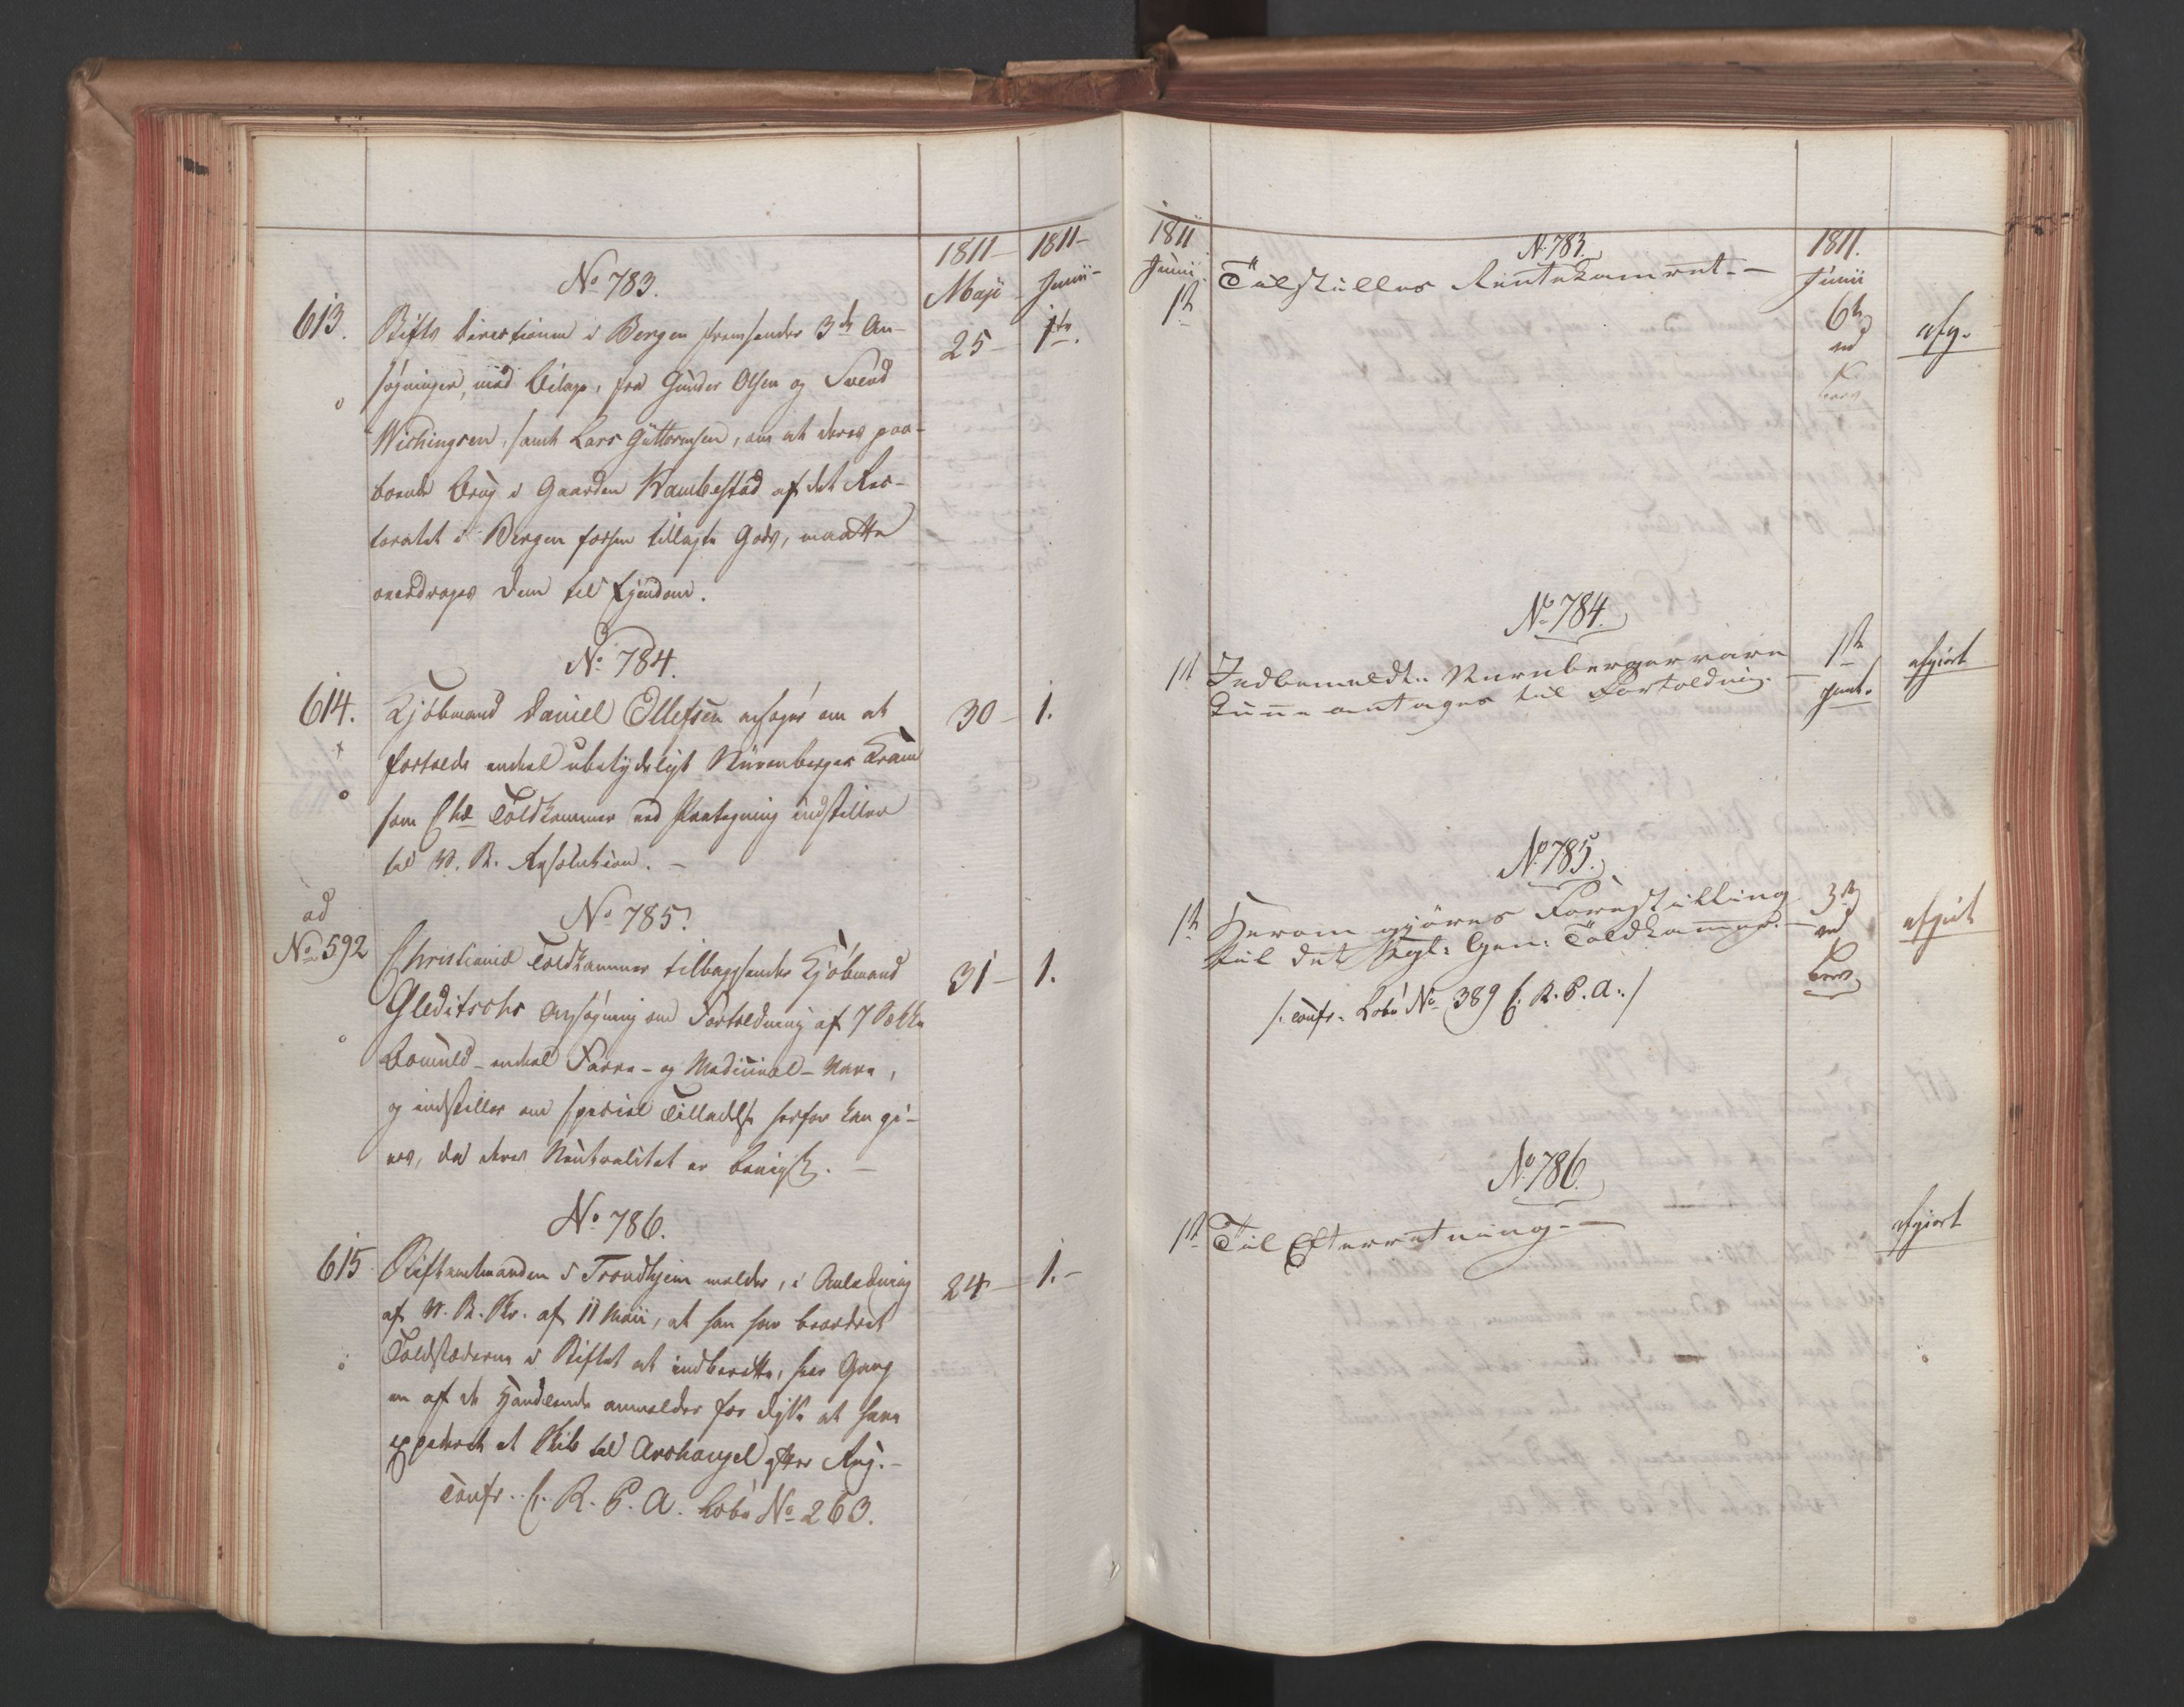 1811 –
1811 –
Maji
Junii –
No 783.
613.
Stifts Directionen i Bergen fremsender 3de An-
25 –
1te.
søgninger, med Bilage, fra Gunder Olsen og Svend
Wichingsen, samt Lars Guttormsen, om at deres paa-
boende Brug i Gaarden Wambestad af det Rec-
toratet i Bergen forhen tillagte Gods, maatte
overdrages dem til Ejendom.
No 784.
614.
Kjøbmand Daniel Ollefsen ansøger om at
30 –
1.
fortolde endeel ubetydeligt Nürenberger Kram
som Chra Toldkammer ved Paategning indstiller
til R. Resolution. –
ad
No 592
No 785.
Christiania Toldkammer tilbagesender Kjøbmand
31 –
1.
Gleditschs Ansøgning om Fortoldning af 7 Pakker
Bomuld – endeel Farve – og Medicinal – Vare,
og indstiller om special Tilladelse herfor kan gi-
ves, da deres Neutralitet er beviist. –
No 786.
615
Stiftamtmanden i Trondhjem melder, i Anledning
24 –
1. –
af R. Skr. af 11 Maii, at han har beordret
Toldstæderne i Stiftet at indberette, hver Gang
en af de Handlende anmelder for dissse at have
expederet et Skib til Archangel efter Rug. –
Confr. C. R. P. A. Lobn No 263.
1811
Junii
No 783.
1811.
Junii
1te
Tilstilles Rentekamret. –
6te
ved
Brev
afg.
No 784.
1te
Indbemeldte Nurnbergervare
kunne antages til Fortoldning.
1te
Junt.
afgiort
No 785.
1te
Herom gjöres Forestilling
til det Kgl: Gen: Toldkammer. –
3die
ved
Brev
afgiort
/: confr. Lobn No 389 C. R. P. A. :/
No 786.
1te
Til Efterretning. –
afgiort